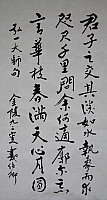 君子之交其淡如水執象而求
咫尺千里問余何適廓爾忘
言華枝春滿天心月圓
弘一大師句